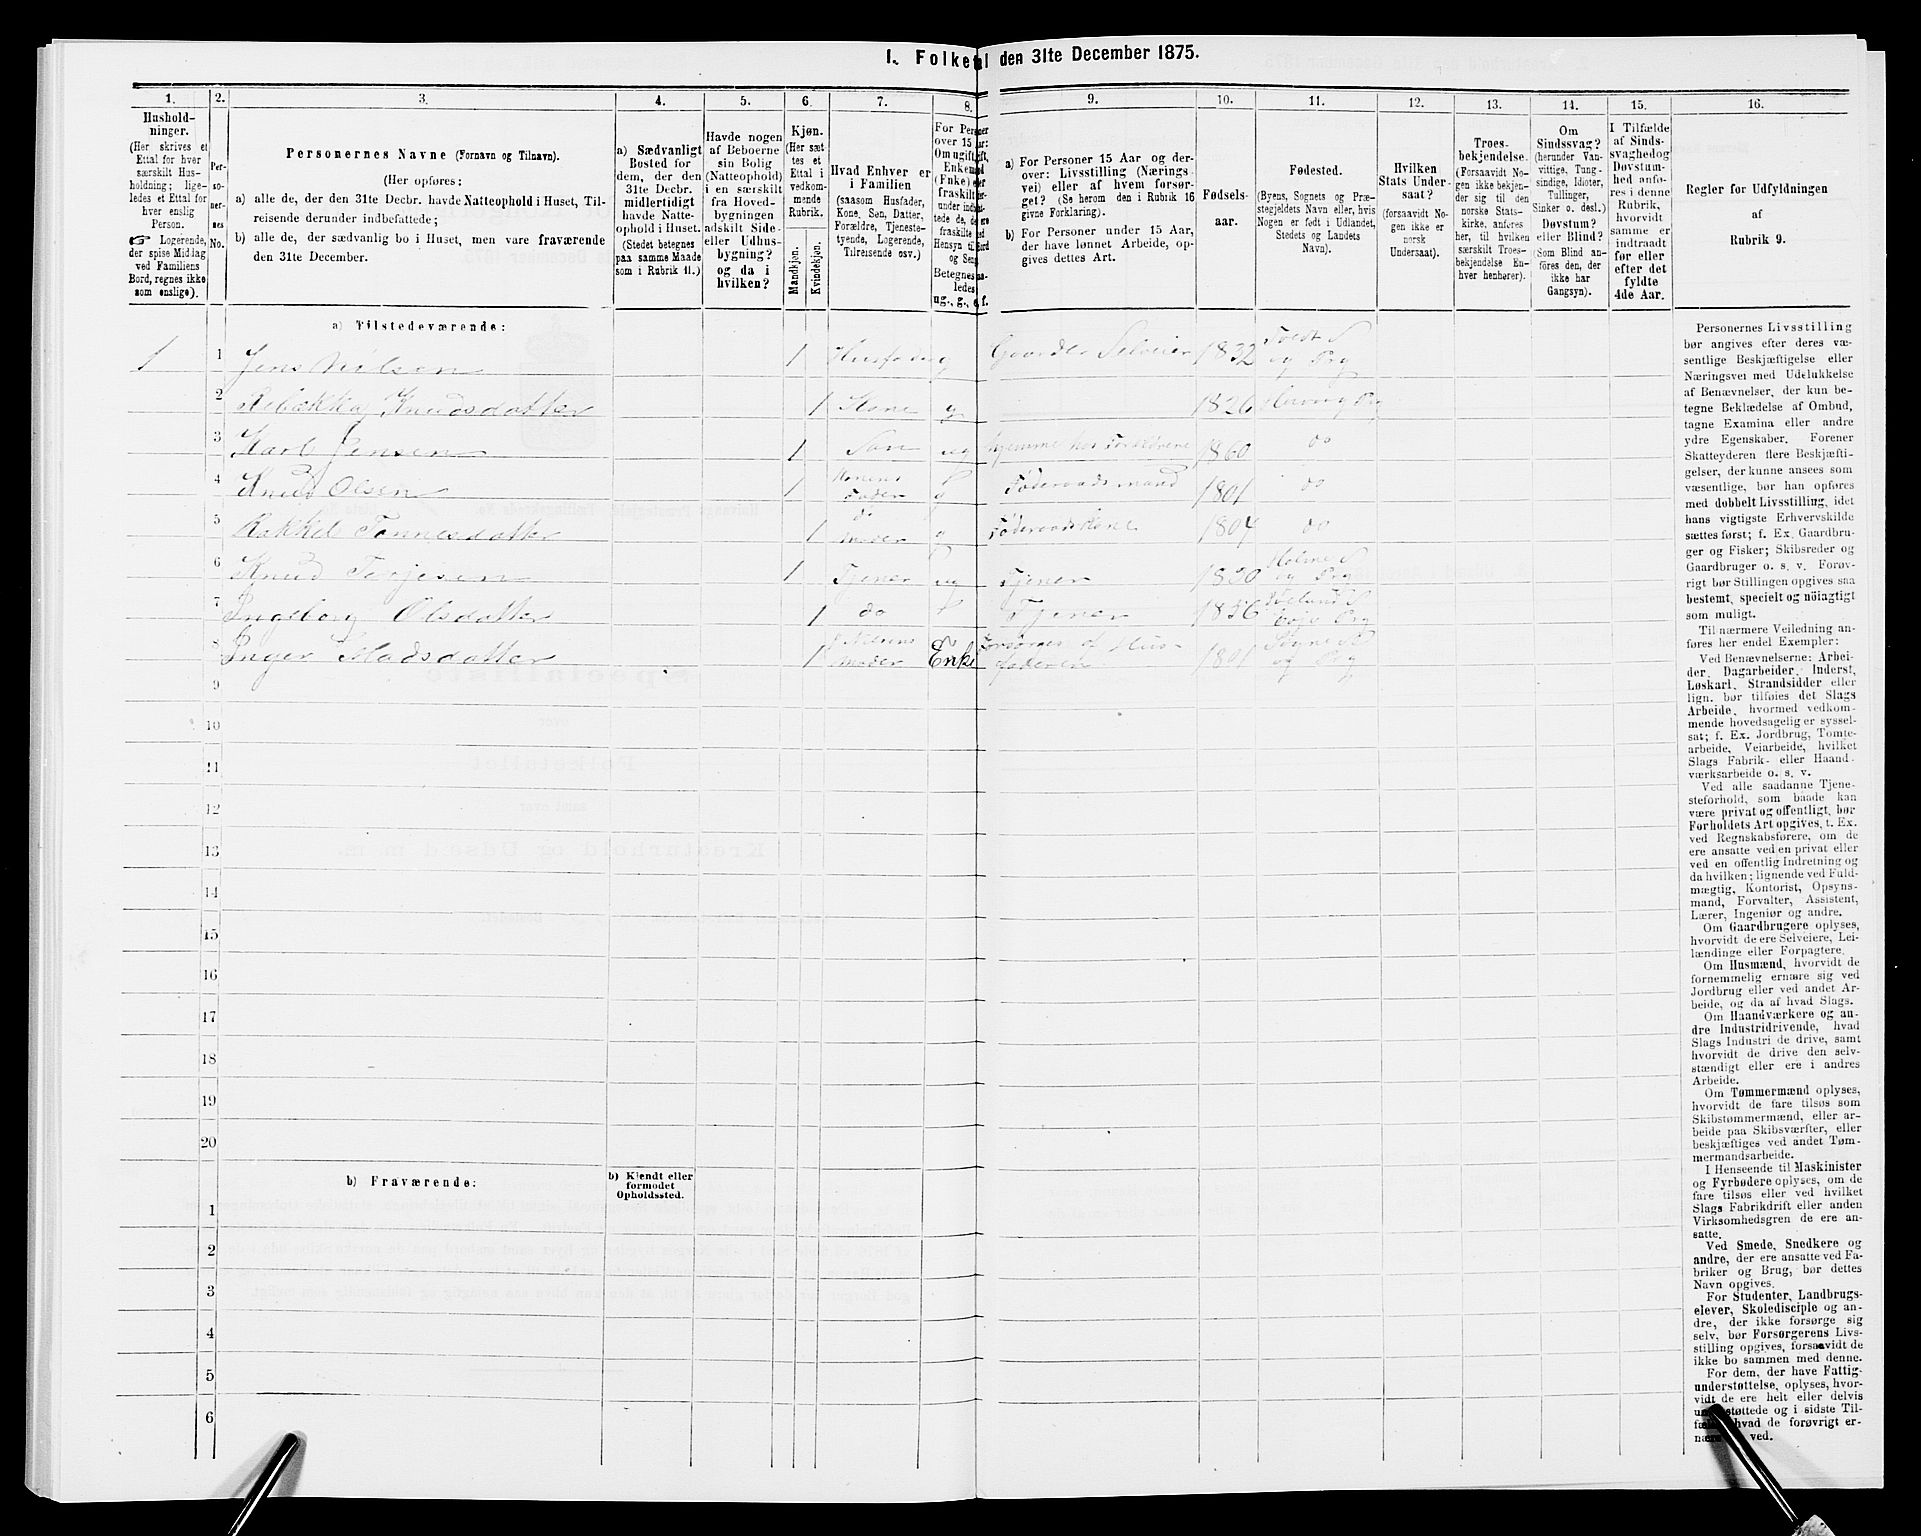 I. Folketal den 31te December 1875.
1.
Hushold-
ninger.
(Her skrives et
Ettal for hver
særskilt Hus-
holdning; lige-
ledes et Ettal for
hver enslig
Person.
☞ Logerende,
der spise Middag
ved Familiens
Bord, regnes ikke
som enslige).
2.
Per-
so-
ner-
nes
No.
3.
Personernes Navne (Fornavn og Tilnavn).
(Her opføres:
a) alle de, der den 31te Decbr. havde Natteophold i Huset, Til-
reisende derunder indbefattede;
b) alle de, der sædvanlig bo i Huset, men vare fraværende
den 31te December.
4.
a) Sædvanligt
Bosted for
dem, der den
31te Decbr.
midlertidigt
havde Natte-
ophold i Huset.
(Stedet betegnes
paa samme Maade
som i Rubrik 11.)
5.
Havde nogen
af Beboerne
sin Bolig
(Natteophold)
i en særskilt
fra Hoved-
bygningen
adskilt Side-
eller Udhus-
bygning?
og da i
hvilken?
6.
Kjøn.
(Her sæt
tes et
Ettal i
vedkom-
mende
Rubrik.
Mandkjøn.
Kvindekjøn.
7.
Hvad Enhver er
i Familien
(saasom Husfader,
Kone, Søn, Datter,
Forældre, Tjeneste-
tyende, Logerende,
Tilreisende osv.)
8.
For Personer
over 15 Aar:
Om ugift, gift,
Enkemand
(Enke) eller
fraskilt
Betegnes
ledes
ug., g., e., f.
9.
a) For Personer 15 Aar og der-
over: Livsstilling (Nærings-
vei) eller af hvem forsør-
get? (Se herom den i Rubrik 16
givne Forklaring).
b) For Personer under 15 Aar,
der have lønnet Arbeide, op-
gives dettes Art.
10.
Fødsels-
aar.
11.
Fødested.
(Byens, Sognets og Præ-
stegjeldets Navn eller, hvis
Nogen er født i Udlandet,
Stedets og Landets
Navn).
12.
Hvilken
Stats Under-
saat?
(forsaavidt No-
gen ikke er
norsk
Undersaat).
13.
Troes-
bekjendelse.
(Forsaavidt No-
gen ikke bekjen-
der sig til den
norske Stats-
kirke, anføres
her, til hvilken
særskilt Troes-
bekjendelse En-
hver henhører).
14.
Om
Sindssvag?
(herunder Van-
vittige, Tung-
sindige, Idioter,
Tullinger,
Sinker o. desl.)
Døvstum?
eller Blind?
(Som Blind an-
føres den, der
ikke har
Gangsyn).
15.
I Tilfælde
af Sinds-
svaghed og
Døvstum-
hed anfø-
res i denne
Rubrik,
hvorvidt
samme er
indtraadt
før eller
efter det
fyldte
4de Aar.
16.
Regler for Udfyldningen
af
Rubrik 9.
a) Tilstedeværende:
1 1 Jens Nilsen 1 Husfader g Gaardbr. Selveier 1832 og Prg
2 Rebækka Knudsdatter 1 Kone g 1826
3 Karl Jensen 1 Søn ug hjemme hos Forældrene 1860 do
4 Knud Olsen 1 Konens Fader g Føderaadsmand 1801 do
5 Rakkel Tønnesdatter 1 do Moder g Føderaadskone 1804 do
6 Knud Terjesen 1 Tjener ug Tjener Holme S og Prg
7 Ingeborg Olsdatter 1 do Tjener
8 Inger Madsdatter 1 J. Nilsens Moder Enke Forsørges af Hus-
faderen 1801 Søgne S og Prg
9
10
11
12
13
14
15
16
17
18
19
20
b) Fraværende:
b) Kjendt eller
formodet
Opholdssted.
1
2
3
4
5
6
Personernes Livsstilling
bør angives efter deres væ-
sentlige Beskjæftigelse eller
Næringsvei med Udelukkelse
af Benævnelser, der kun be-
tegne Beklædelse af Ombud,
tagne Examina eller andre
ydre Egenskaber. Forener
Skatteyderen flere Beskjæfti-
gelser, der kunne ansees som
væsentlige, bør han opføres
med dobbelt Livsstilling, idet
hans vigtigste Erhvervskilde
sættes først; f. Ex. Gaardbru-
ger og Fisker; Skibsreder og
Gaardbruger o. s. v. Forøv-
rigt bør Stillingen opgives saa
bestemt, specielt og nøiagtigt
som muligt.
Til nærmere Veiledning an-
føres her endel Exempler:
Ved Benævnelserne: Arbei-
der, Dagarbeider, Inderst,
Løskarl, Strandsidder eller
lign. bør tilføies det Slags
Arbeide, hvormed vedkom-
mende hovedsagelig er syssel-
sat; f. Ex. Jordbrug, Tomte-
arbeide, Veiarbeide, hvilket
Slags Fabrik- eller Haand-
værksarbeide o. s. v.
Ved alle saadanne Tjene-
steforhold, som baade kan
være privat og offentligt, bør
Forholdets Art opgives, t. Ex.
ved Regnskabsførere, om de
ere ansatte ved en privat eller
ved en offentlig Indretning og
da hvilken; lignende ved Fuld-
mægtig, Kontorist, Opsyns-
mand, Forvalter, Assistent,
Lærer, Ingeniør og andre.
Om Gaardbrugere oplyses,
hvorvidt de ere Selveiere, Lei-
lændinge eller Forpagtere.
Om Husmænd, hvorvidt de
fornemmelig ernære sig ved
Jordbrug eller ved andet Ar-
beide, og da af hvad Slags.
Om Haandværkere og an-
dre Industridrivende, hvad
Slags Industri de drive, samt
hvorvidt de drive den selv-
stændigt eller ere i andres
Arbeide.
Om Tømmermænd oplyses,
hvorvidt de fare tilsøs som
Skibstømmermænd, eller ar-
beide paa Skibsværfter, eller
beskjæftiges ved andet Tøm-
mermandsarbeide.
I Henseende til Maskinister
og Fyrbødere oplyses, om de
fare tilsøs eller ved hvilket
Slags Fabrikdrift eller anden
Virksomhedsgren de ere an-
satte.
Ved Smede, Snedkere og
andre, der ere ansatte ved Fa-
briker og Brug, bør dettes
Navn opgives.
For Studenter, Landbrugs-
elever, Skoledisciple og an-
dre, der ikke forsørge sig
selv, bør Forsørgerens Livs-
stilling opgives, forsaavidt de
ikke bo sammen med denne.
For dem, der have Fattig-
understøttelse, oplyses, hvor-
vidt de ere helt eller delvis
understøttede og i sidste Til-
hvad de forøvrigt er-
ved.